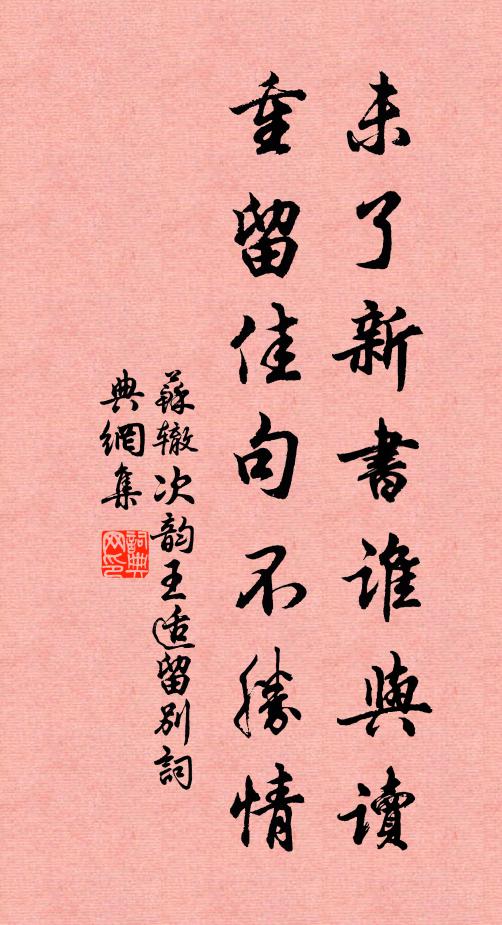 未了新書誰與讀
重留佳句不勝情
蘇轍次韵王适留別詞
典網集
詞典网印